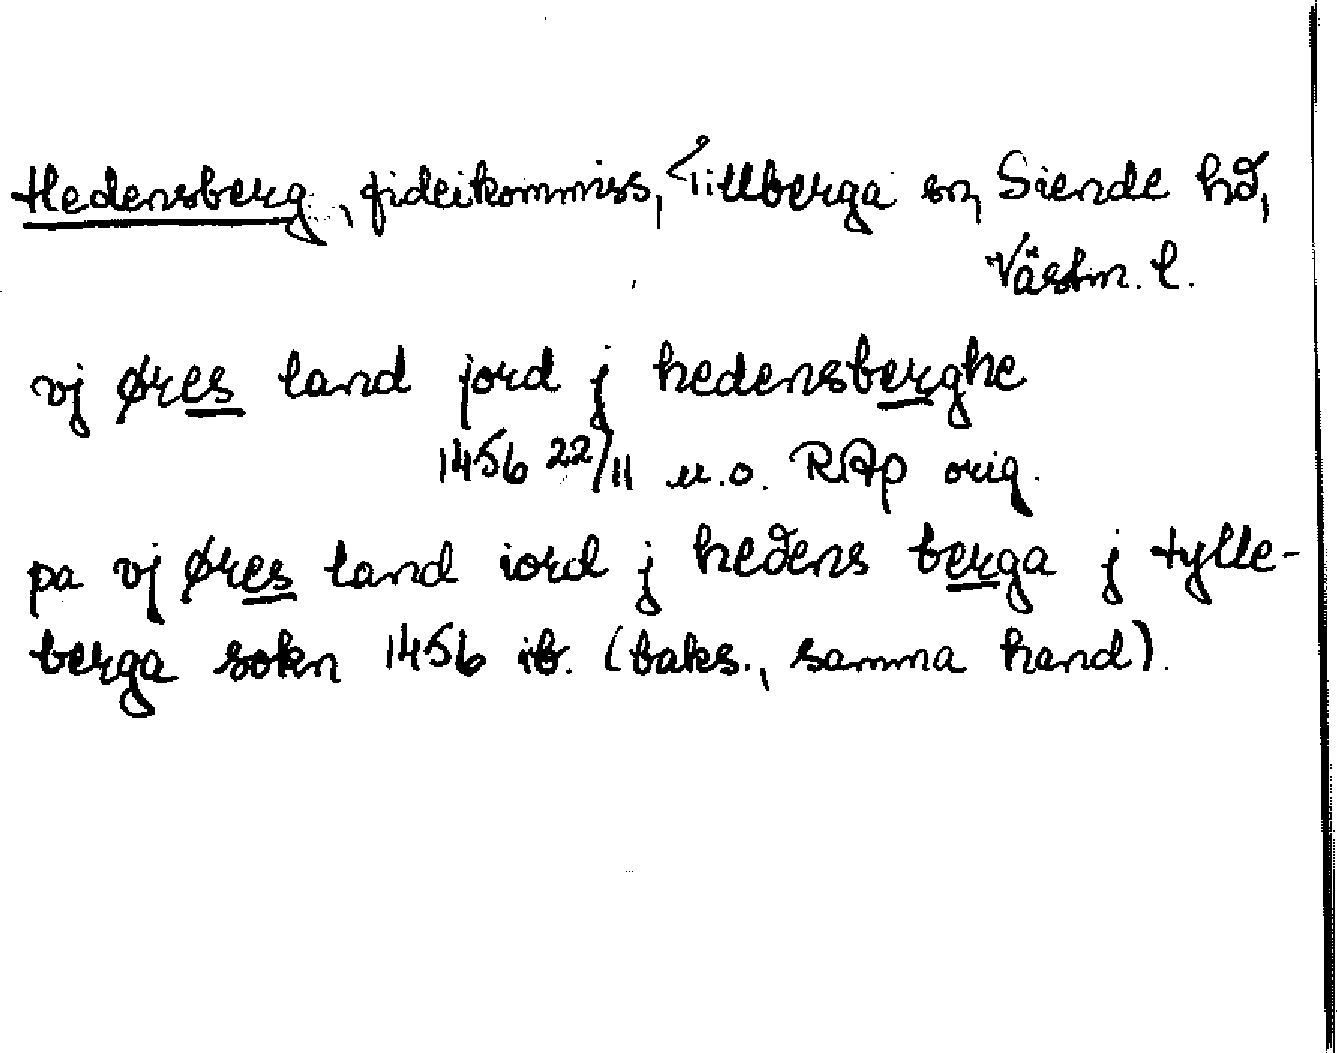 Hedensberg, fideikommiss, Tillberga sn, Siende hd,
Västm. l.
vj øres land jord j hedensberghe
1456 22/11 u.o. RAp orig.
pa vj øres land iord j hedens berga j tylle-
berga sokn 1456 ib. (baks., samma hand).